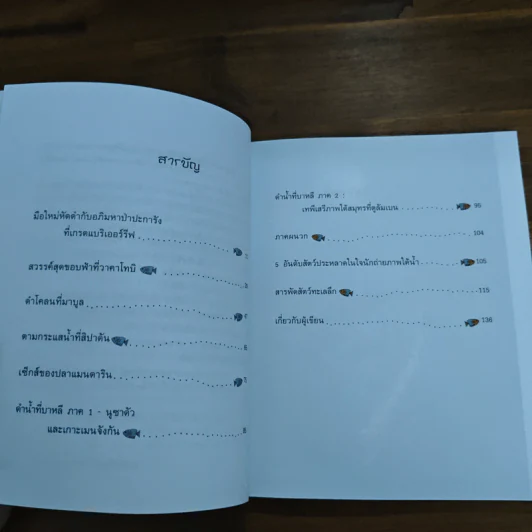 สารบัญ
มือใหม่หัดดำกับอภิมหาป่าปะการัง
ที่เกรตแบริเออร์รีฟ
สวรรค์สุดขอบฟ้าที่วาคาโทบิ
ดำโคลนที่มาบูล
ตามกระแสน้ำที่สิปาดัน
เซ็กส์ของปลาแมนดาริน
ดำน้ำที่บาหลี ภาค 1 - นูซาดัว
และเกาะเมนจังกัน
ดำน้ำที่บาหลี ภาค 2 :
เทพีเสรีภาพใต้สมุทรที่ตูลัมเบน 95
ภาคผนวก 104
5 อันดับสัตว์ประหลาดในใจนักถ่ายภาพใต้น้ำ 105
สารพัดสัตว์ทะเลลึก 115
เกี่ยวกับผู้เขียน 136